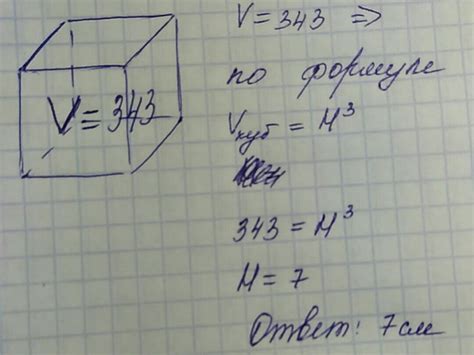 V = 343
V = 343 =>
по формуле
Vкуб = H³
343 = H³
H = 7
Ответ: 7 см